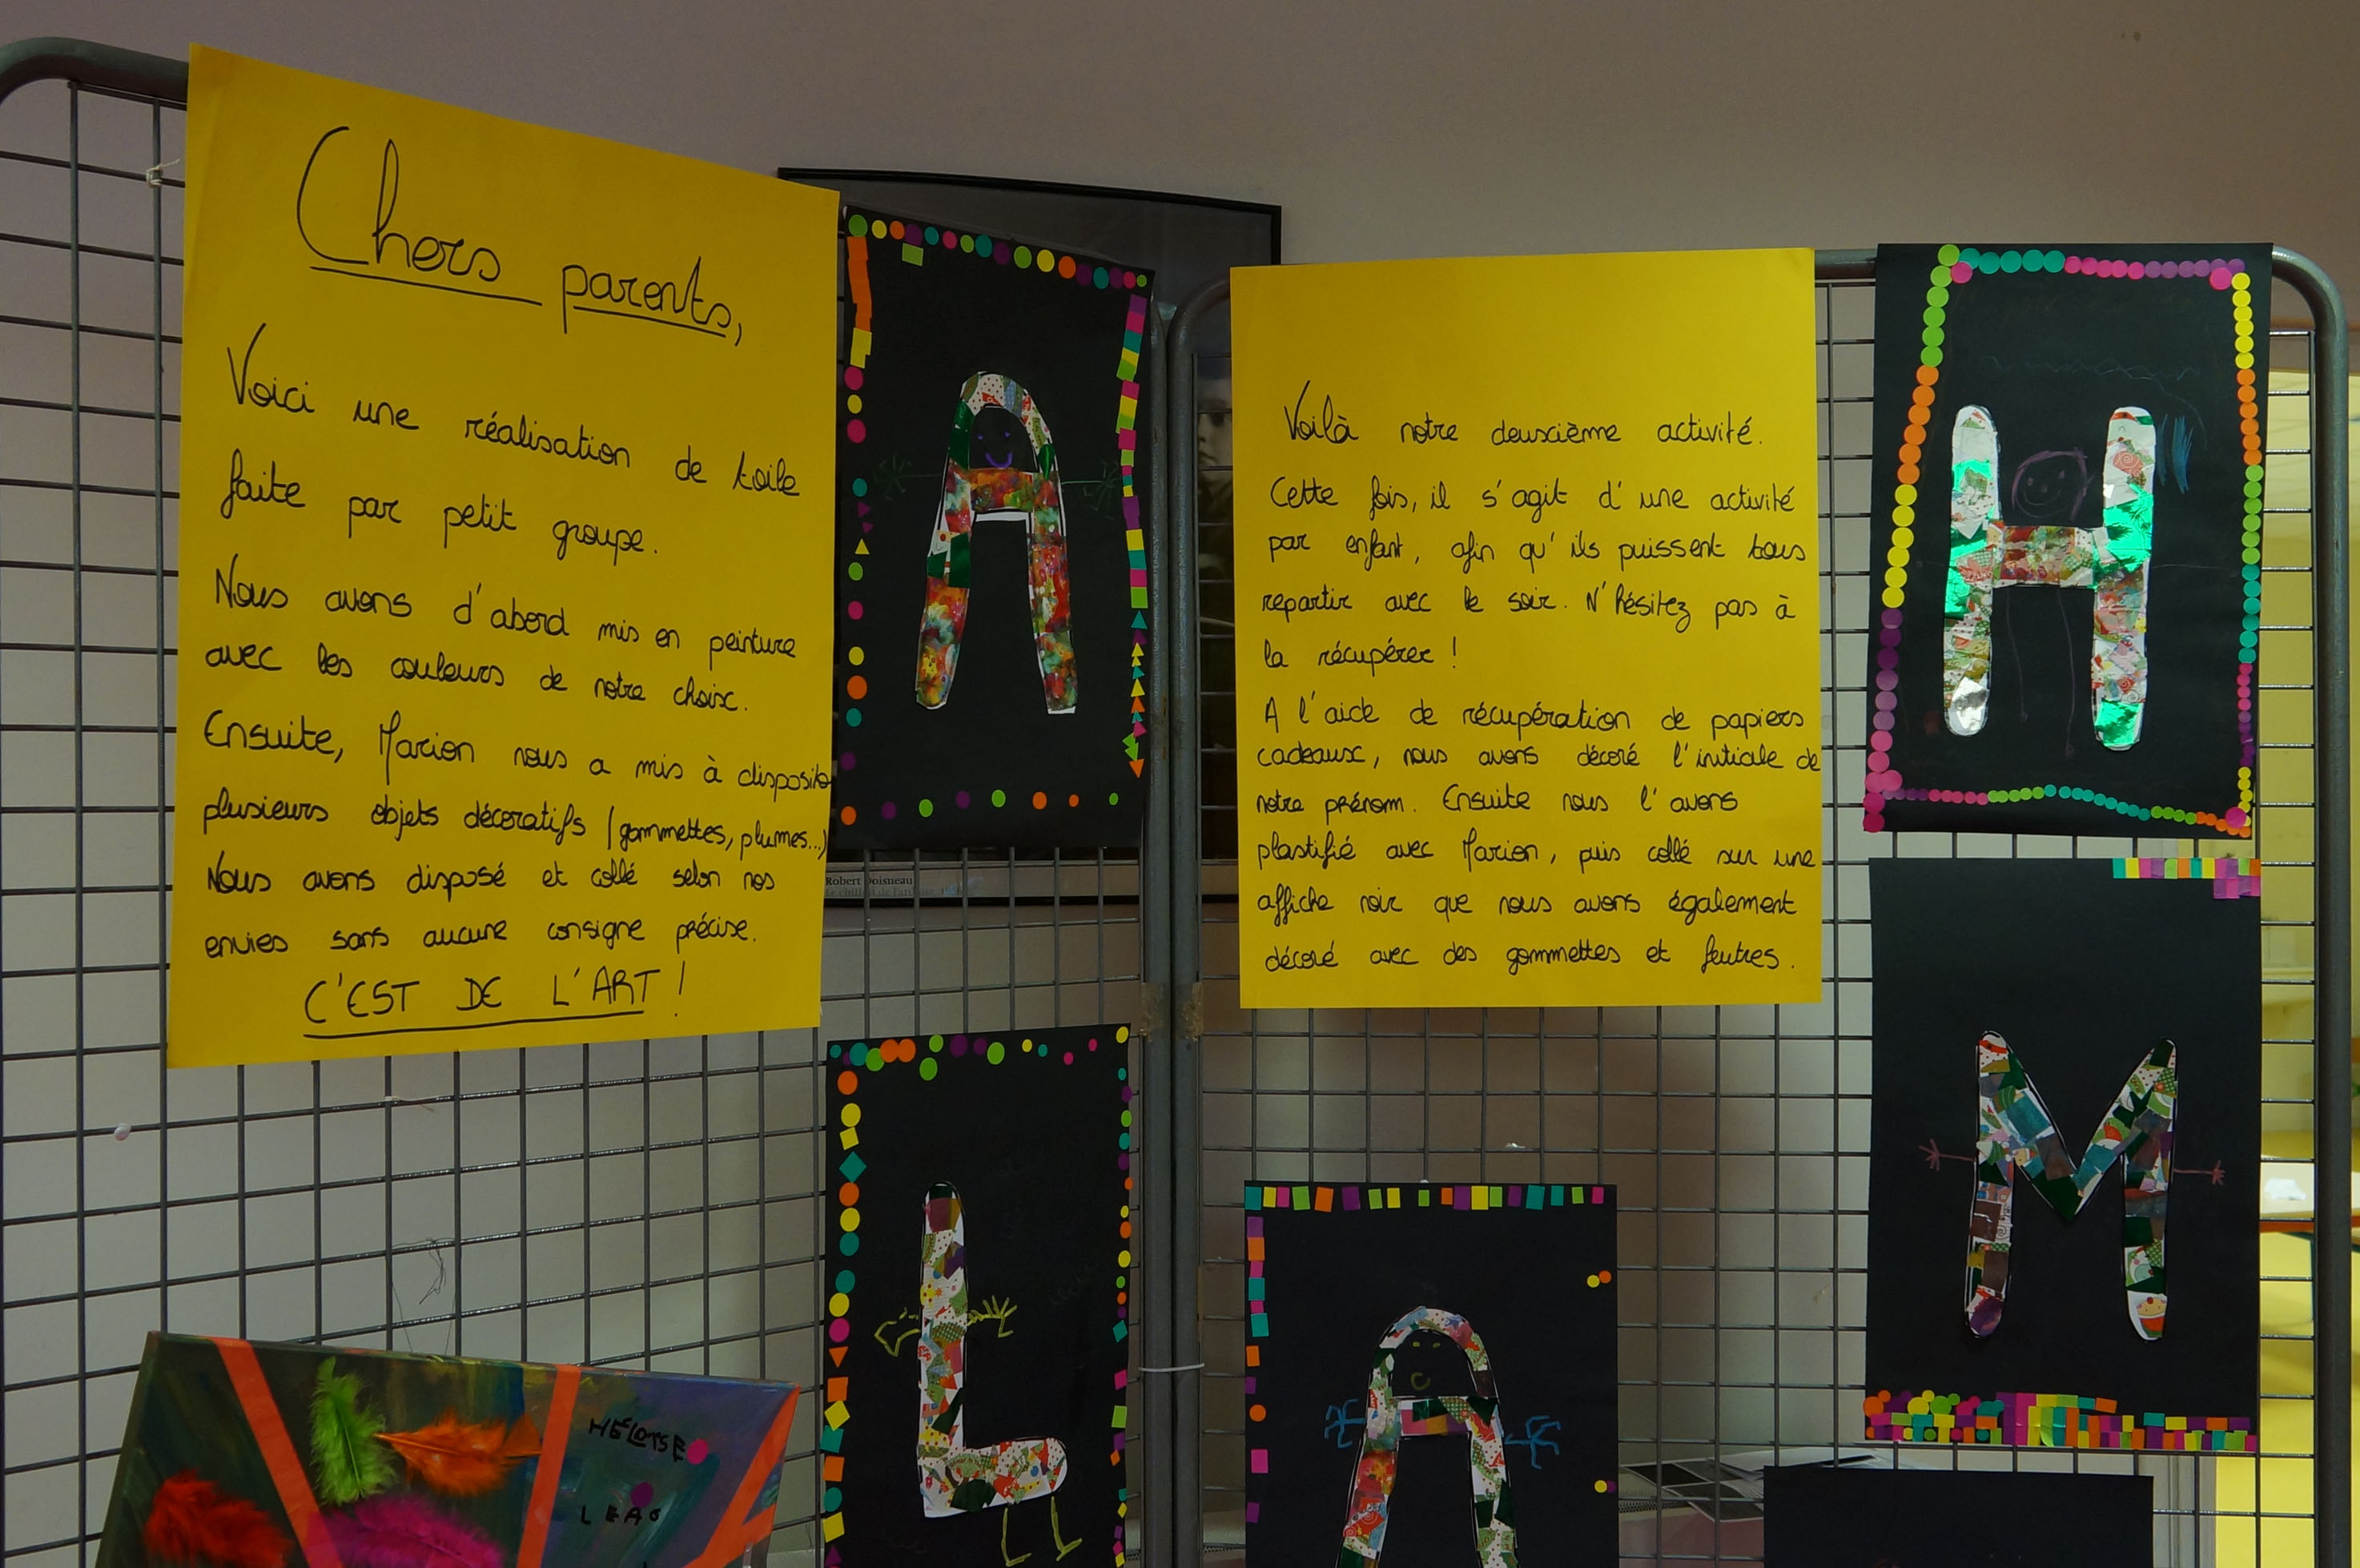 Chers parents,
Voici une réalisation de toile
faite par petit groupe.
Nous avons d'abord mis en peinture
avec les couleurs de notre choix.
Ensuite, Marion nous a mis à dispositio
plusieurs objets décoratifs (gommettes, plumes...)
Nous avons disposé et collé selon nos
envies sans aucune consigne précise.
C'EST DE L'ART !
A
Robert Doisneau
L
HÉLOISE
Voilà notre deuxième activité.
Cette fois, il s'agit d'une activité
par enfant, afin qu'ils puissent tous
repartir avec le soir. N'hésitez pas à
la récupérer !
A l'aide de récupération de papiers
cadeaux, nous avons décoré l'initiale de
notre prénom. Ensuite nous l'avons
plastifié avec Marion, puis collé sur une
affiche noir que nous avons également
décoré avec des gommettes et feutres.
H
M
A